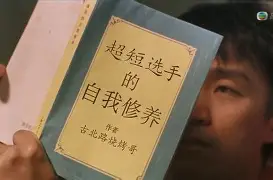 超短选手
的
自我修养
作者
古北路烧烤哥